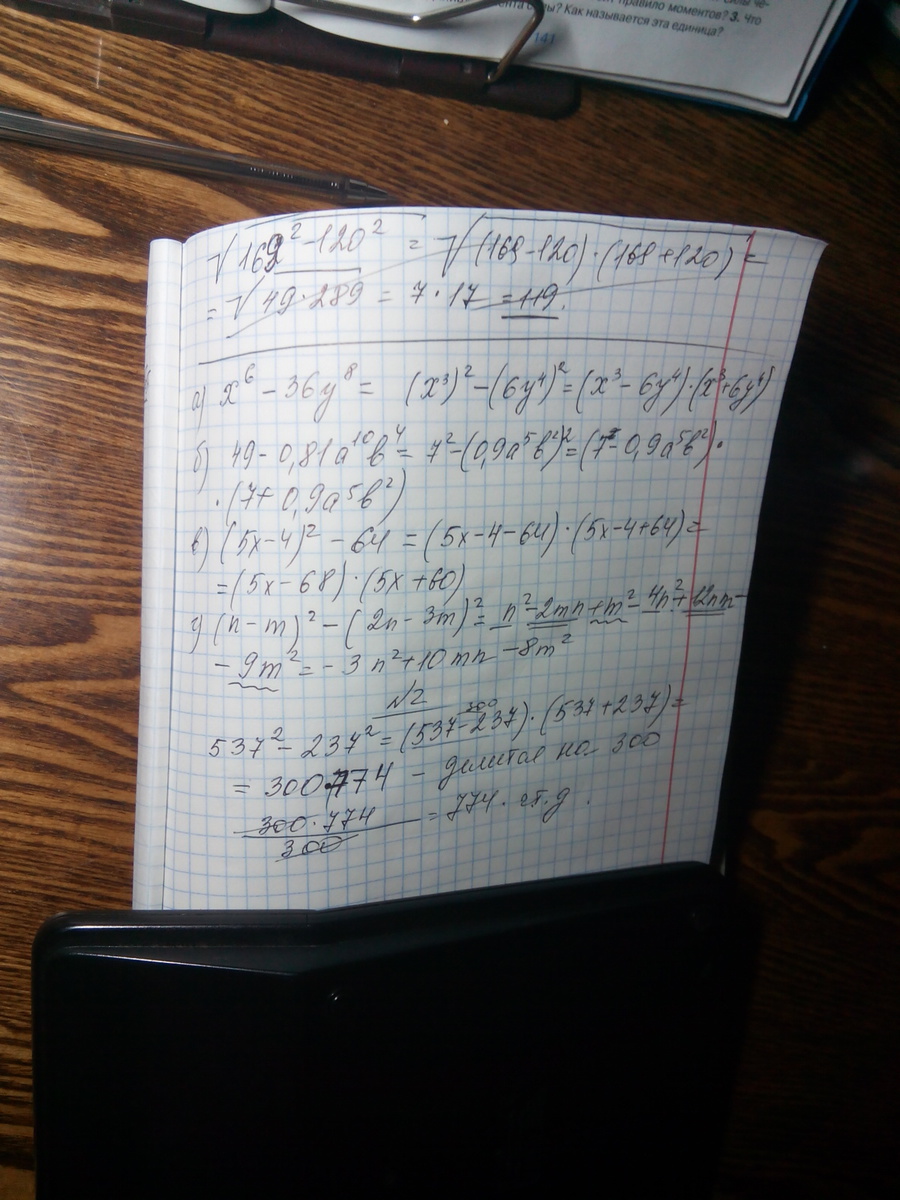 правило моментов? 3. Что
мента силы? Как называется эта единица?
141
√169² - 120² = √(169-120)·(169+120) =
= √49·289 = 7·17 = 119.
а) x⁶ - 36y⁸ = (x³)² - (6y⁴)² = (x³ - 6y⁴)·(x³+6y⁴)
б) 49 - 0,81a¹⁰b⁴ = 7² - (0,9a⁵b²)² = (7 - 0,9a⁵b²)·
·(7+0,9a⁵b²)
в) (5x-4)² - 64 = (5x-4-64)·(5x-4+64) =
= (5x-68)·(5x+60)
г) (n-m)² - (2n-3m)² = n² - 2mn + m² - 4n² + 12nm -
- 9m² = -3n² + 10mn - 8m²
№2
300
537² - 237² = (537-237)·(537+237) =
= 300·774 - делится на 300
300·774 / 300 = 774. ч.т.д.